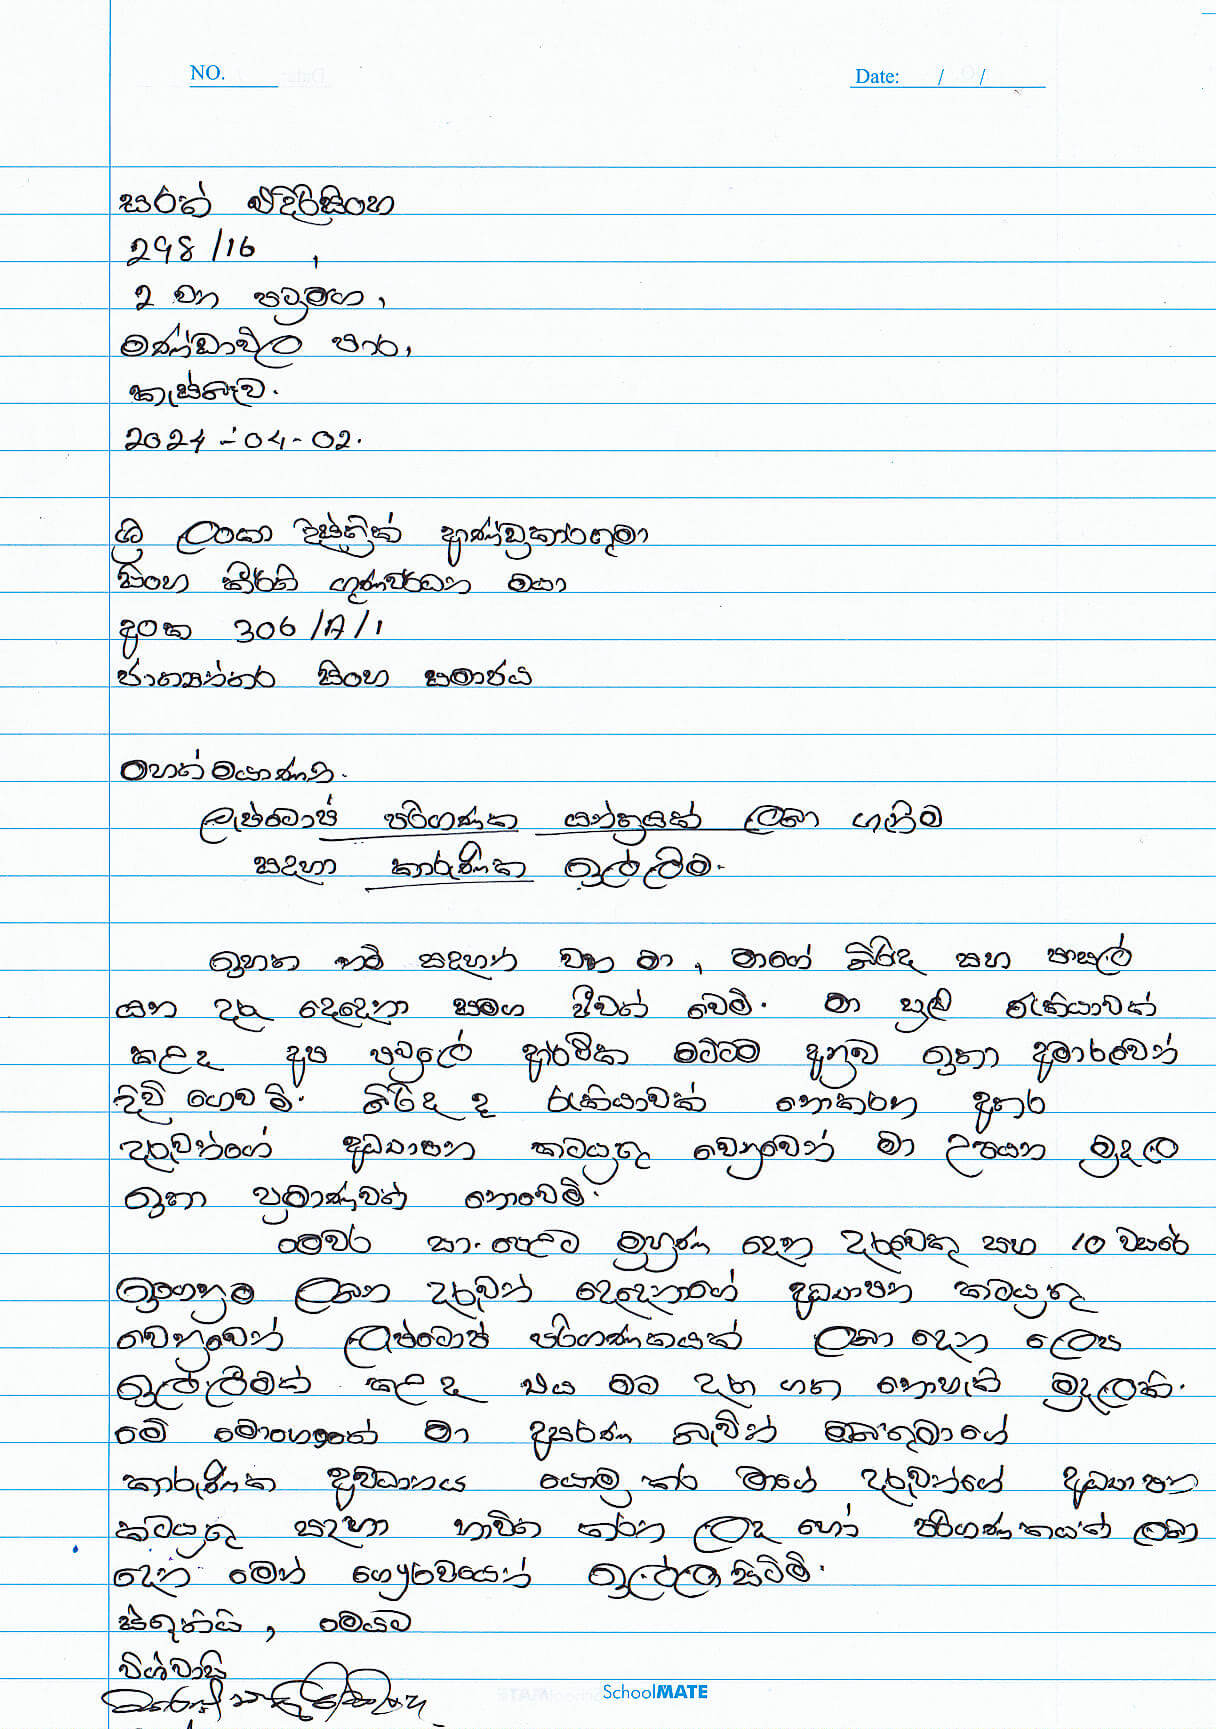 NO. Date: / /
සරත් එදිරිසිංහ
298/16 ,
2 වන පටුමග,
මණ්ඩාවිල පාර,
කැස්බෑව.
2024-04-02.
ශ්‍රී ලංකා දිස්ත්‍රික් ආණ්ඩුකාරතුමා
සිංහ කීර්ති ගුණවර්ධන මයා
අංක 306/A/1
ජාත්‍යන්තර සිංහ සමාජය
මහත්මයාණනි.
ලැප්ටොප් පරිගණක යන්ත්‍රයක් ලබා ගැනීම
සඳහා කාරුණික ඉල්ලීම.
ඉහත නම් සඳහන් වන මා, මාගේ බිරිඳ සහ පාසල්
යන දරු දෙදෙනා සමග ජීවත් වෙමි. මා සුළු රැකියාවක්
කළද අප පවුලේ ආර්ථික මට්ටම අනුව ඉතා අමාරුවෙන්
දිවි ගෙවමි. බිරිඳ ද රැකියාවක් නොකරන අතර
දරුවන්ගේ අධ්‍යාපන කටයුතු වෙනුවෙන් මා උපයන මුදල
ඉතා ප්‍රමාණවත් නොවෙමි.
මෙවර සා.පෙළට මුහුණ දෙන දරුවෙකු සහ 10 වසරේ
ඉගෙනුම ලබන දරුවන් දෙදෙනාගේ අධ්‍යාපන කටයුතු
වෙනුවෙන් ලැප්ටොප් පරිගණකයක් ලබා දෙන ලෙස
ඉල්ලීමක් කළ ද එය මට දැරිය නොහැකි මුදලකි.
මේ මොහොතේ මා අසරණ බැවින් ඔබතුමාගේ
කාරුණික අවධානය යොමු කර මාගේ දරුවන්ගේ අධ්‍යාපන
කටයුතු සඳහා භාවිත කරන ලද හෝ පරිගණකයක් ලබා
දෙන මෙන් ගෞරවයෙන් ඉල්ලා සිටිමි.
ස්තුතියි, මෙයට
විශ්වාසී
SchoolMATE